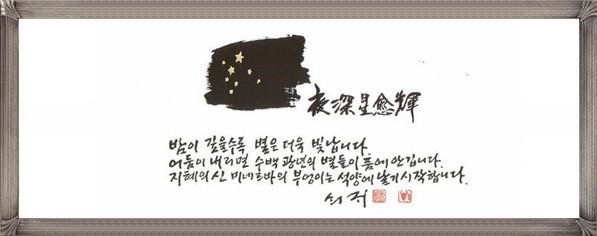 夜深星愈輝
밤이 깊을수록 별은 더욱 빛납니다.
어둠이 내리면 수백 광년의 별들이 품에 안깁니다.
지혜의 신 미네르바의 부엉이는 석양에 날기 시작합니다.